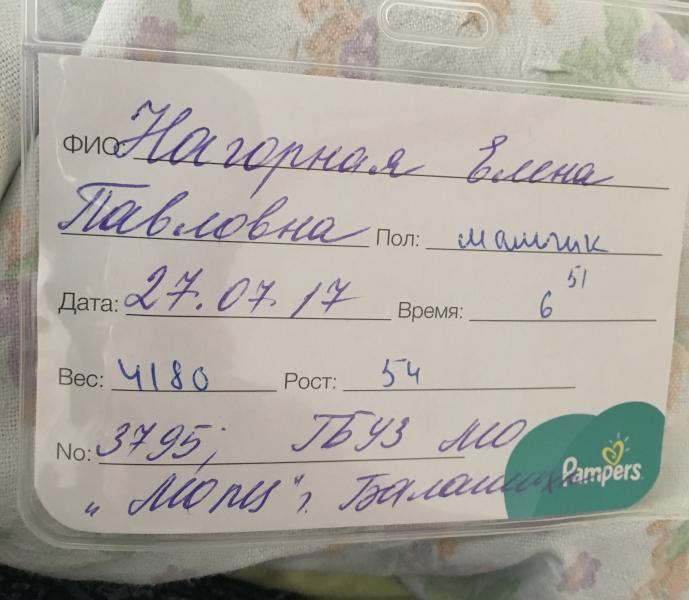 ФИО: Нагорная Елена
Павловна Пол: мальчик
Дата: 27.07.17 Время: 6 51
Вес: 4180 Рост: 54
No: 3795; ГБУЗ МО
"МОПЦ" г. Балашиха
Pampers